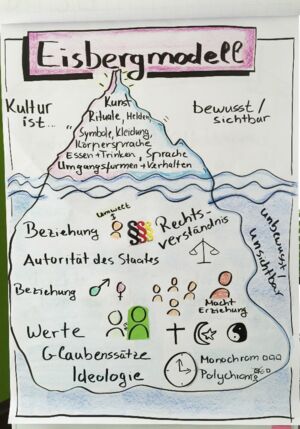 Eisbergmodell
Kultur
ist...
Kunst
Rituale, Helden
Symbole, Kleidung,
Körpersprache
Essen + Trinken, Sprache
Umgangsformen + Verhalten
bewusst/
sichtbar
Beziehung
Umwelt
§§§
Rechts-
verständnis
Autorität des Staates
unbewusst/
unsichtbar
Beziehung
Macht
Erziehung
Werte
Glaubenssätze
Ideologie
Monochrom
Polychrom